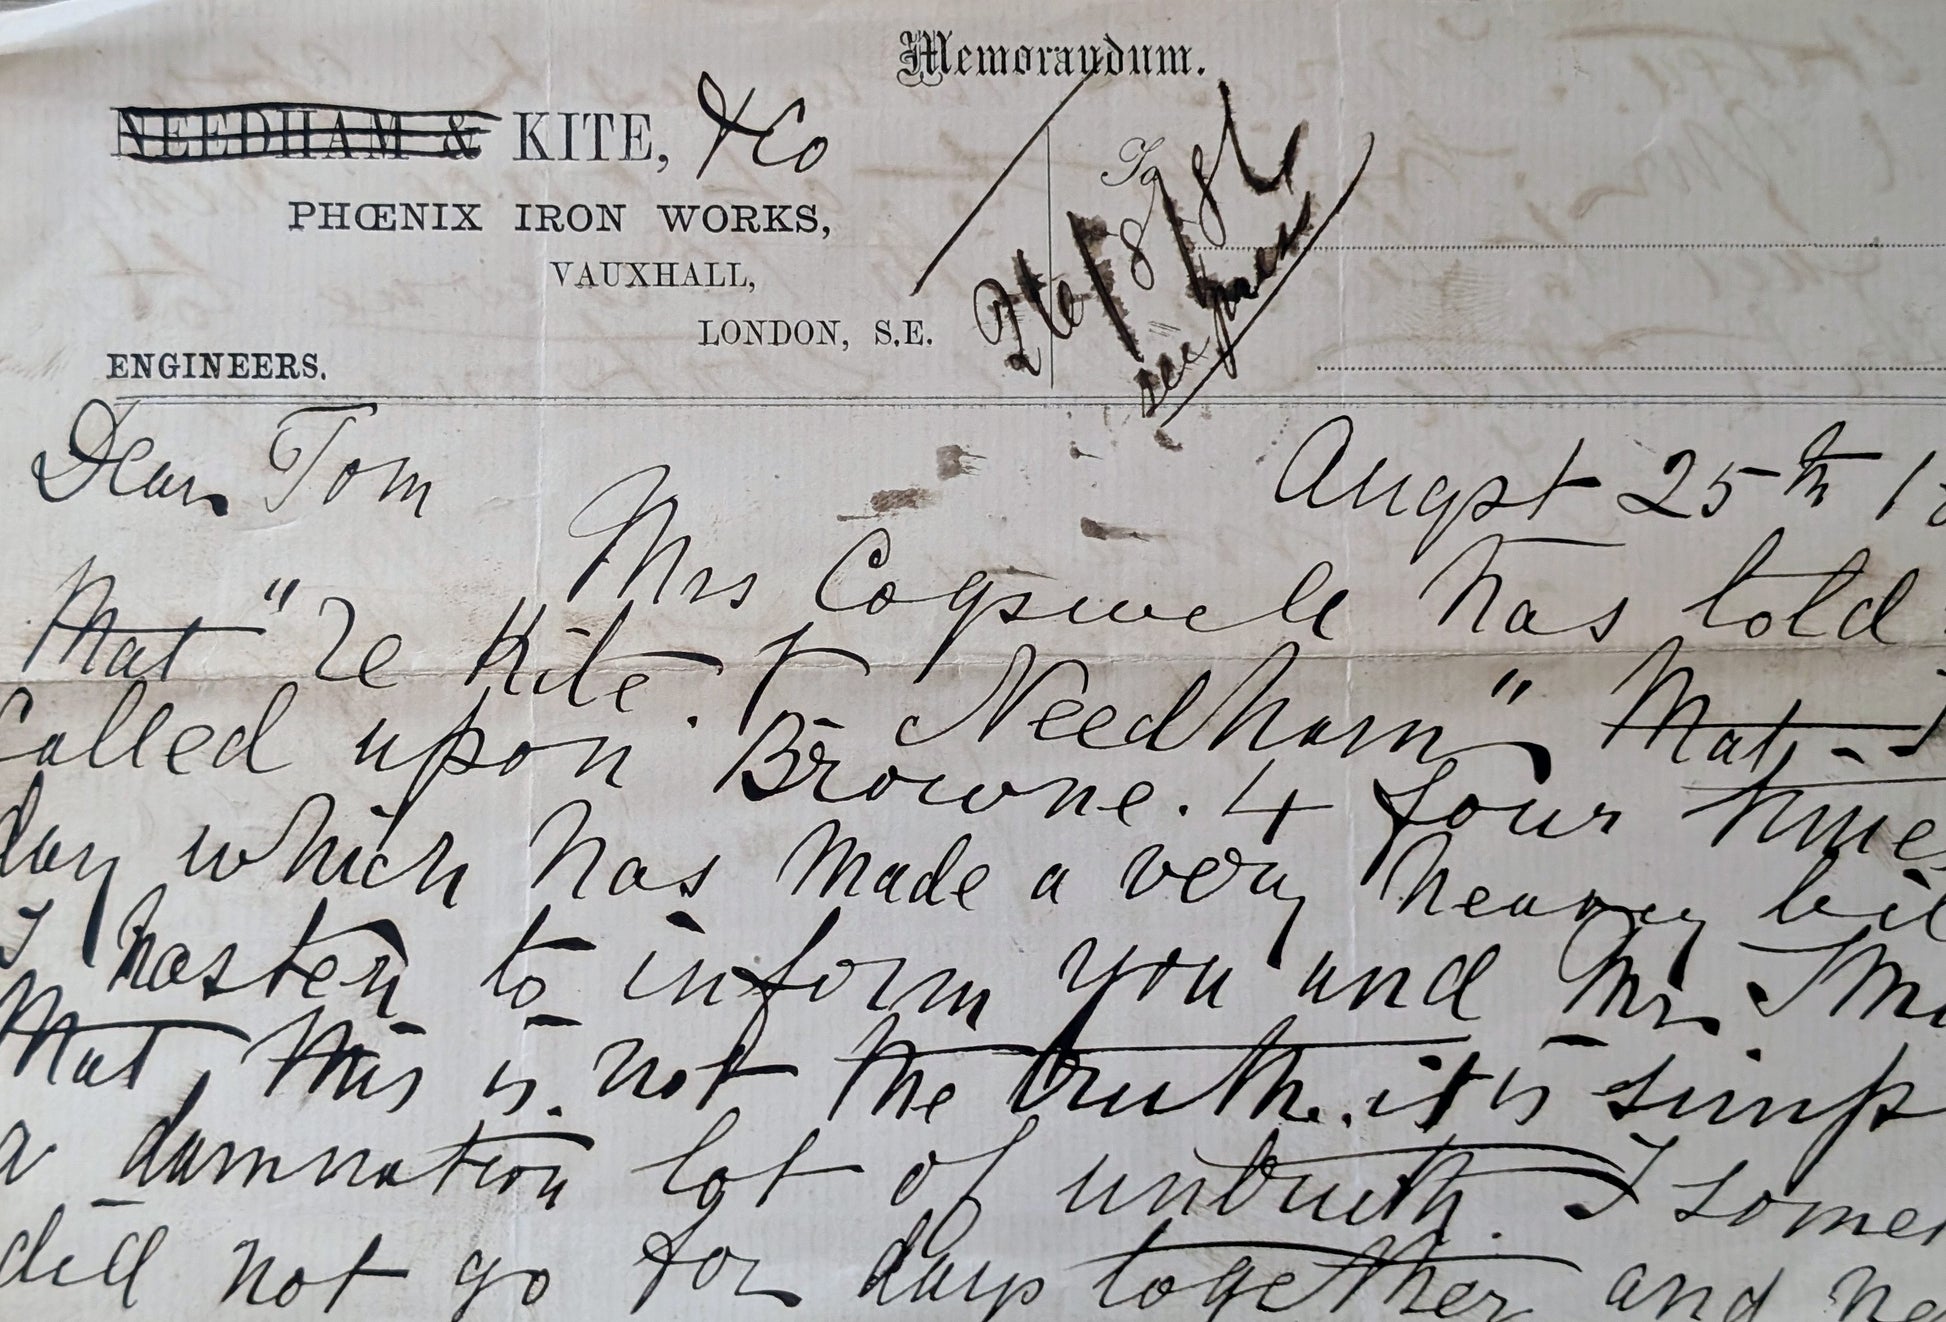 Memorandum.
NEEDHAM & KITE, & Co
PHŒNIX IRON WORKS,
VAUXHALL,
LONDON, S.E.
ENGINEERS.
To
26/8/82
Dear Tom
Augst 25th 1
Mrs Cogswell has told
that "re Kite. v Needham" that
Called upon Browne. 4 four times
day which has made a very heavy bil
I hasten to inform you and Mr.
that, this is not the truth. it is simp
a damnation lot of untruth. I some
did not go for days together and ne